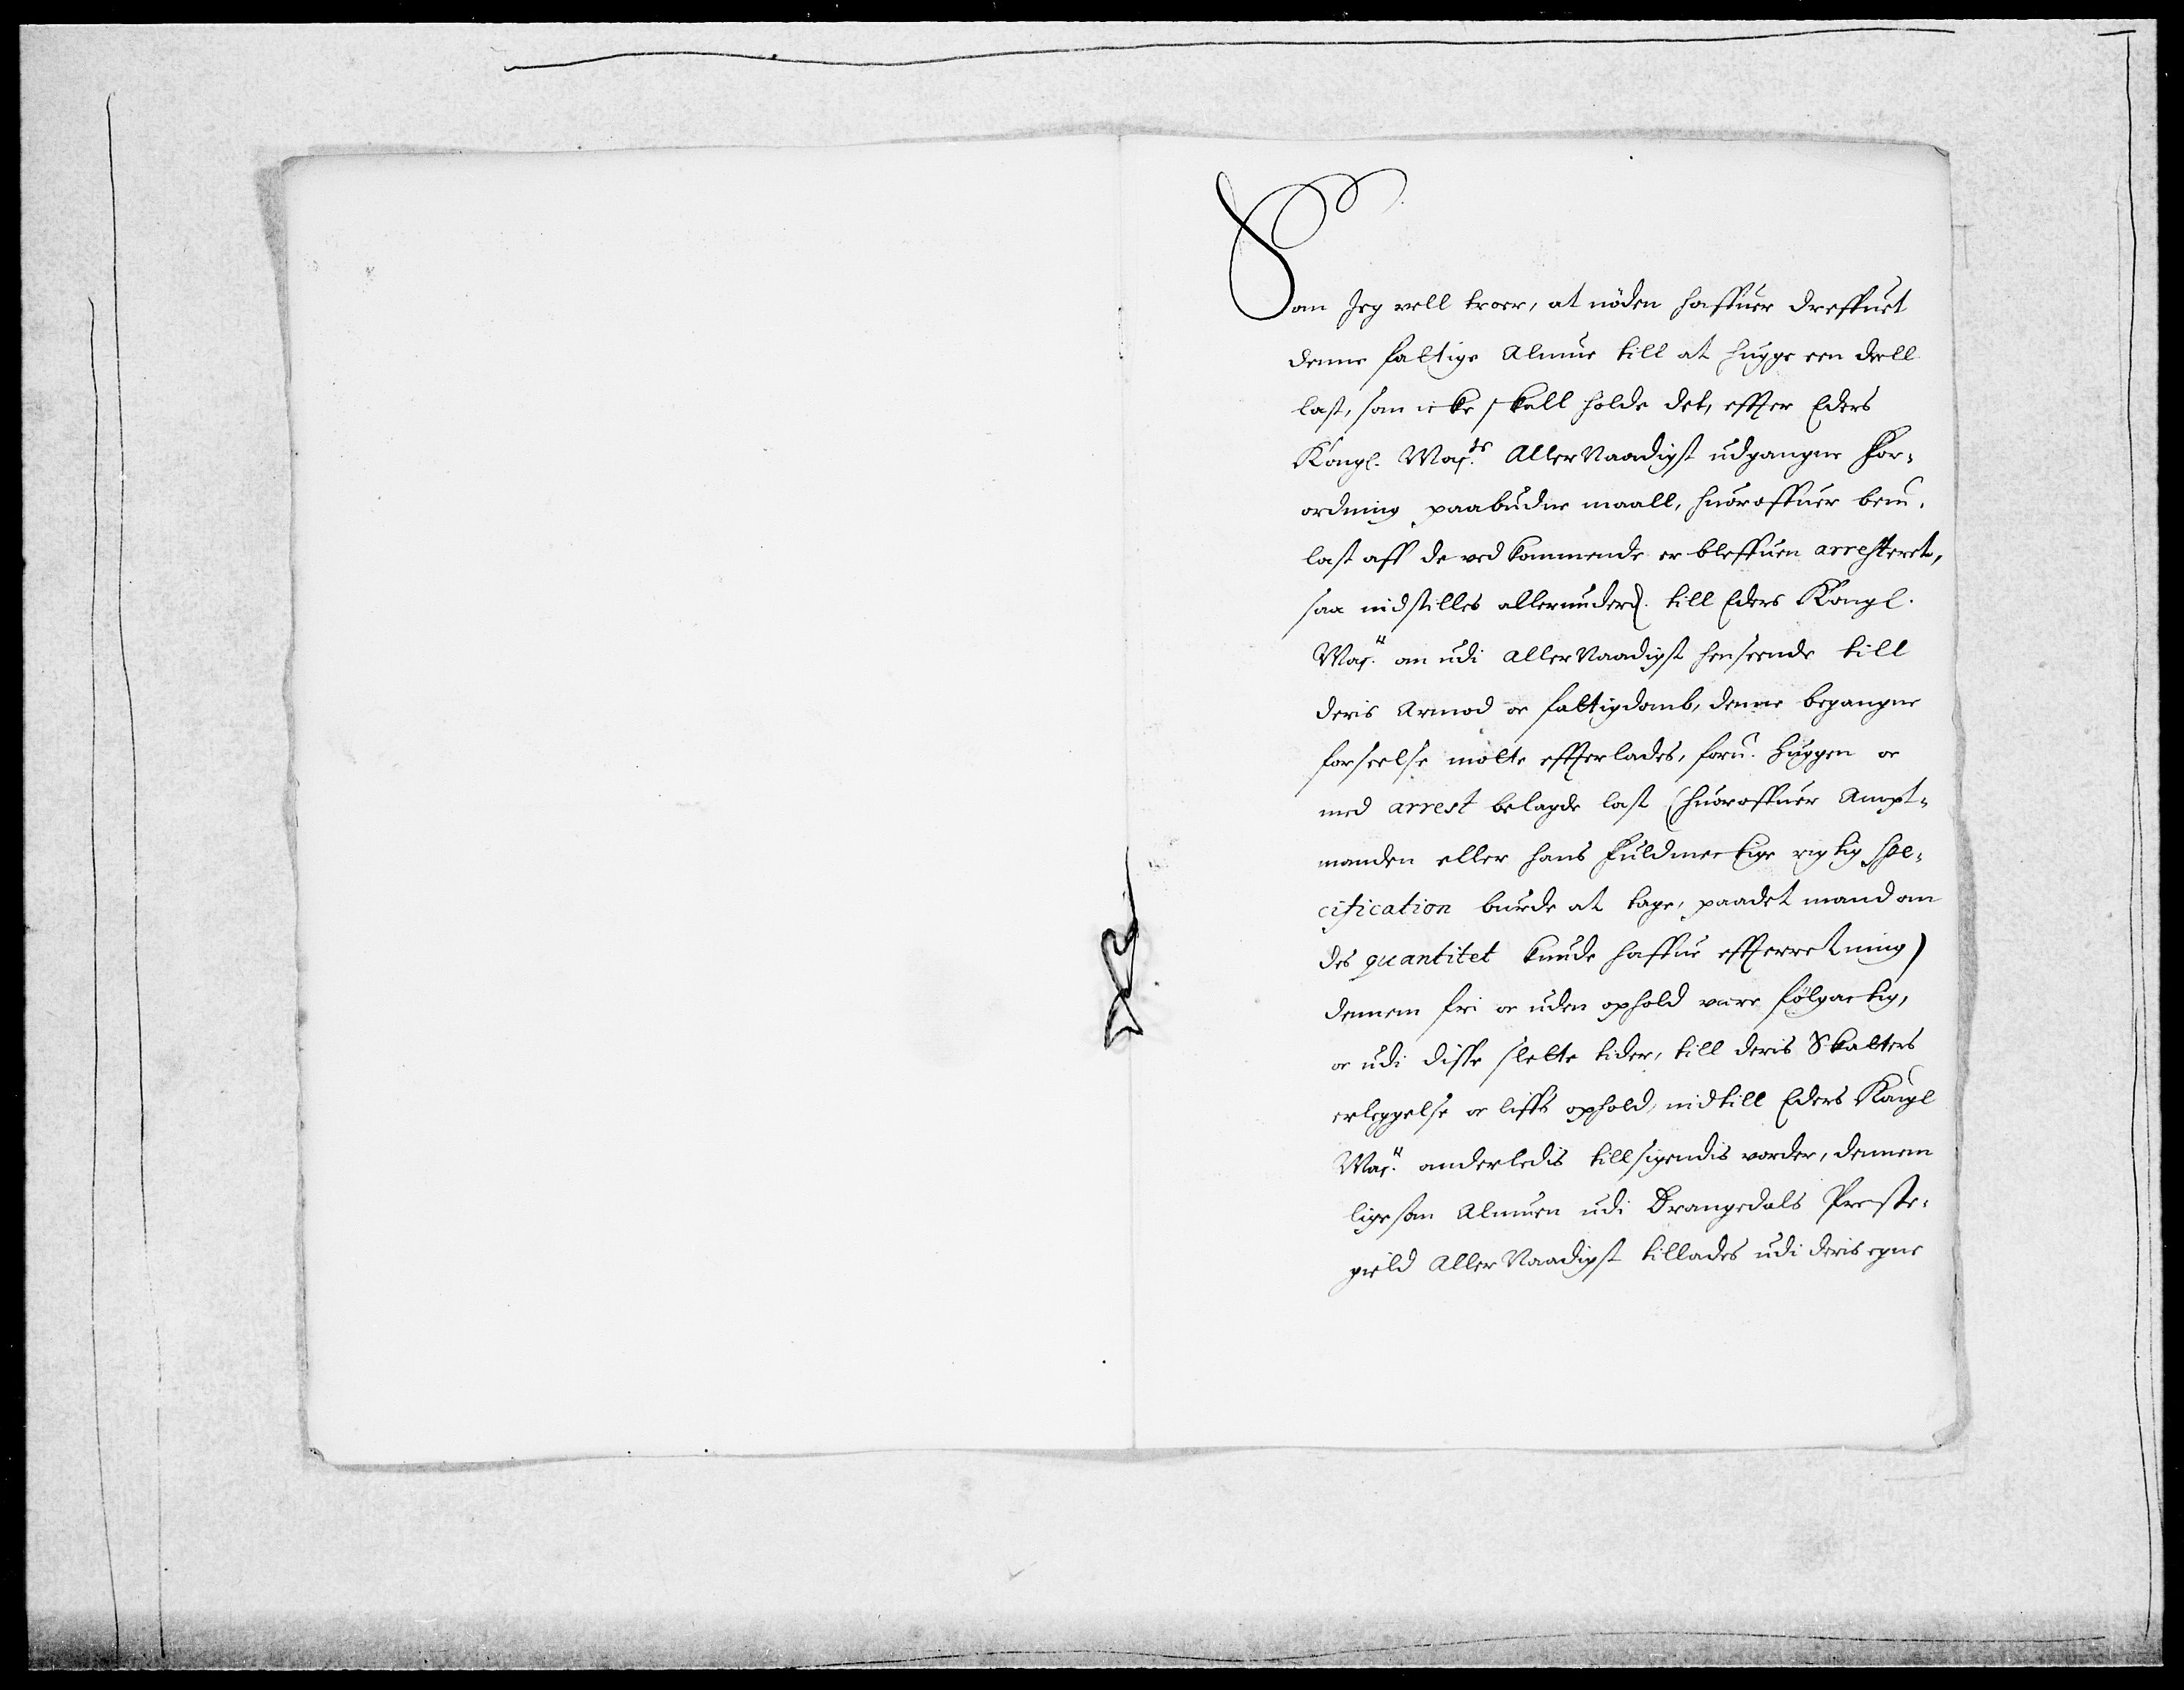 Som Jeg vell troer, at nöden haffuer dreffuet
denne fattige Almue till at hugge een deell
last, som icke skall holde det, effter Eders
Kongl. Maj:ts Aller Naadigst udgangne For-
ordning paabudne maall, huoroffuer bem:
last aff de ved kommende er bleffuen arresteret,
saa indstilles allerunderd. till Eders Kongl.
Maj:tt om udi Aller Naadigst henseende till
deris Armod oc fattigdomb, denne begangne
forseelse motte effterlades, foru: huggen oc
med arrest belagde last (huoroffuer Ampt-
manden eller hans fuldmectige rigtig spe-
cification burde at tage, paadet mand om
des quantitet kunde haffue effterretning)
dennem fri oc uden ophold være fölgactig,
oc udi disse slette tider, till deris Skatters
erleggelse oc liffs ophold, indtill Eders Kongl
Maj:tt anderledis tillsigendis vorder, dennem
lige som Almuen udi Drangedals Preste-
gield Aller Naadigst tillades udi deris egne